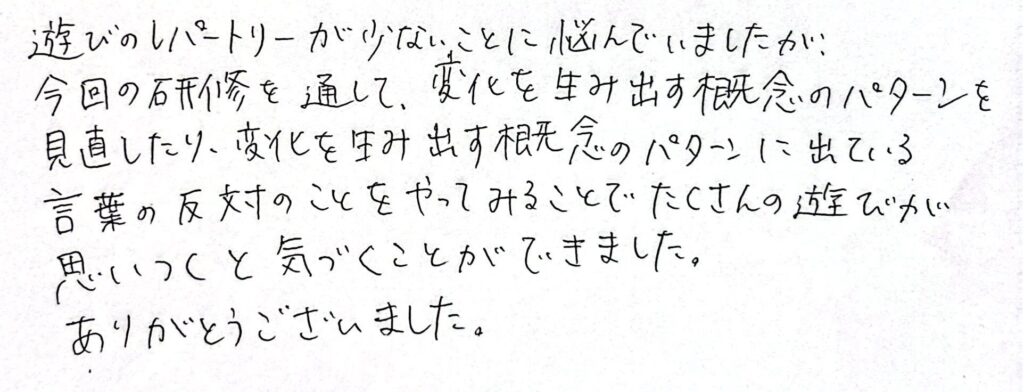 遊びのレパートリーが少ないことに悩んでいましたが、
今回の研修を通して、変化を生み出す概念のパターンを
見直したり、変化を生み出す概念のパターンに出ている
言葉の反対のことをやってみることでたくさんの遊びが
思いつくと気づくことができました。
ありがとうございました。